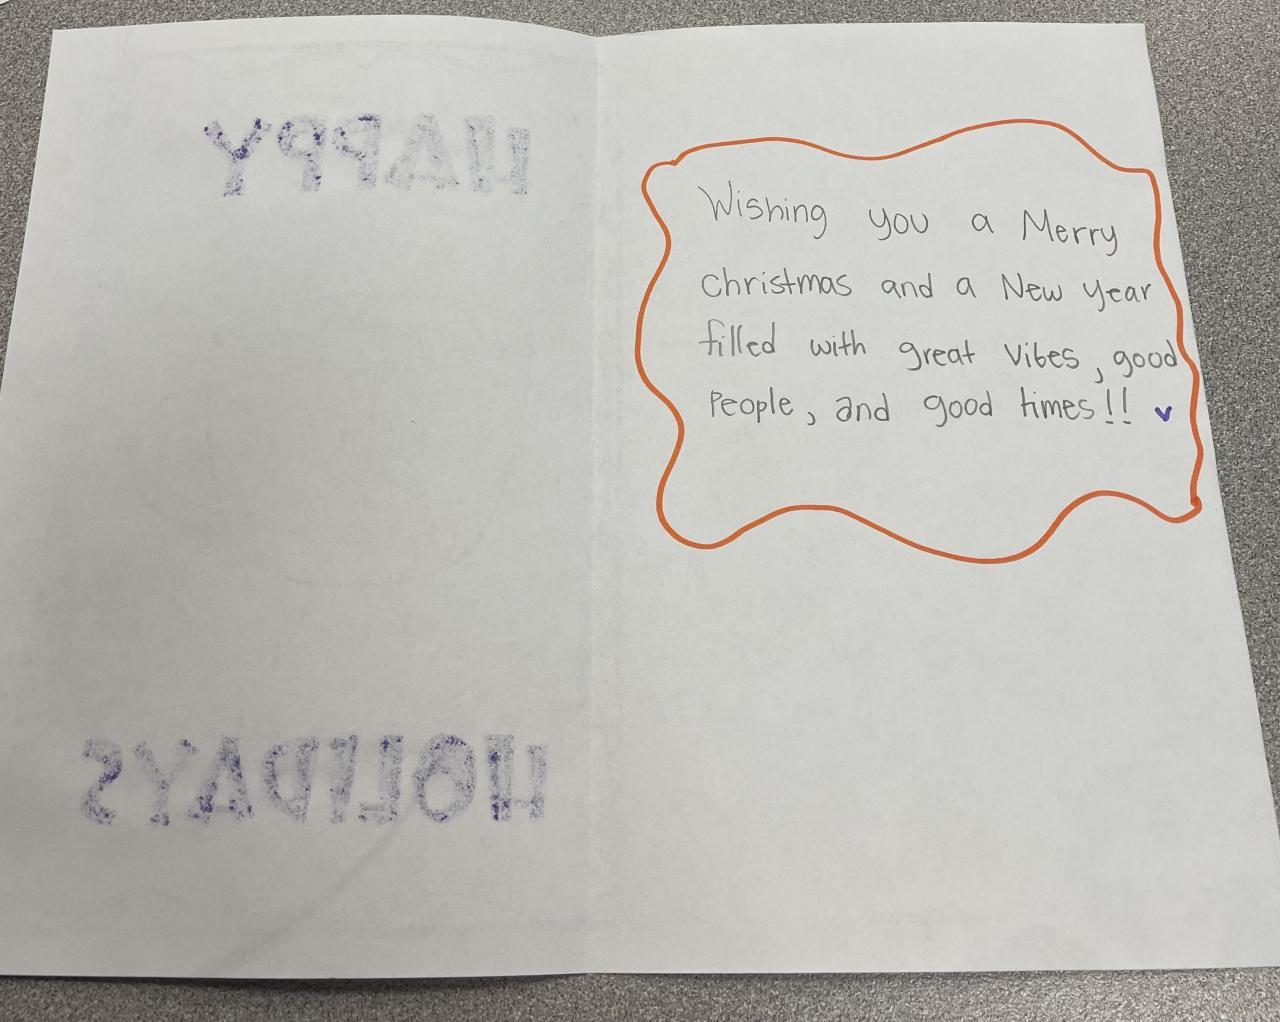 HAPPY
HOLIDAYS
Wishing you a Merry
christmas and a New year
filled with great vibes, good
People, and good times!!